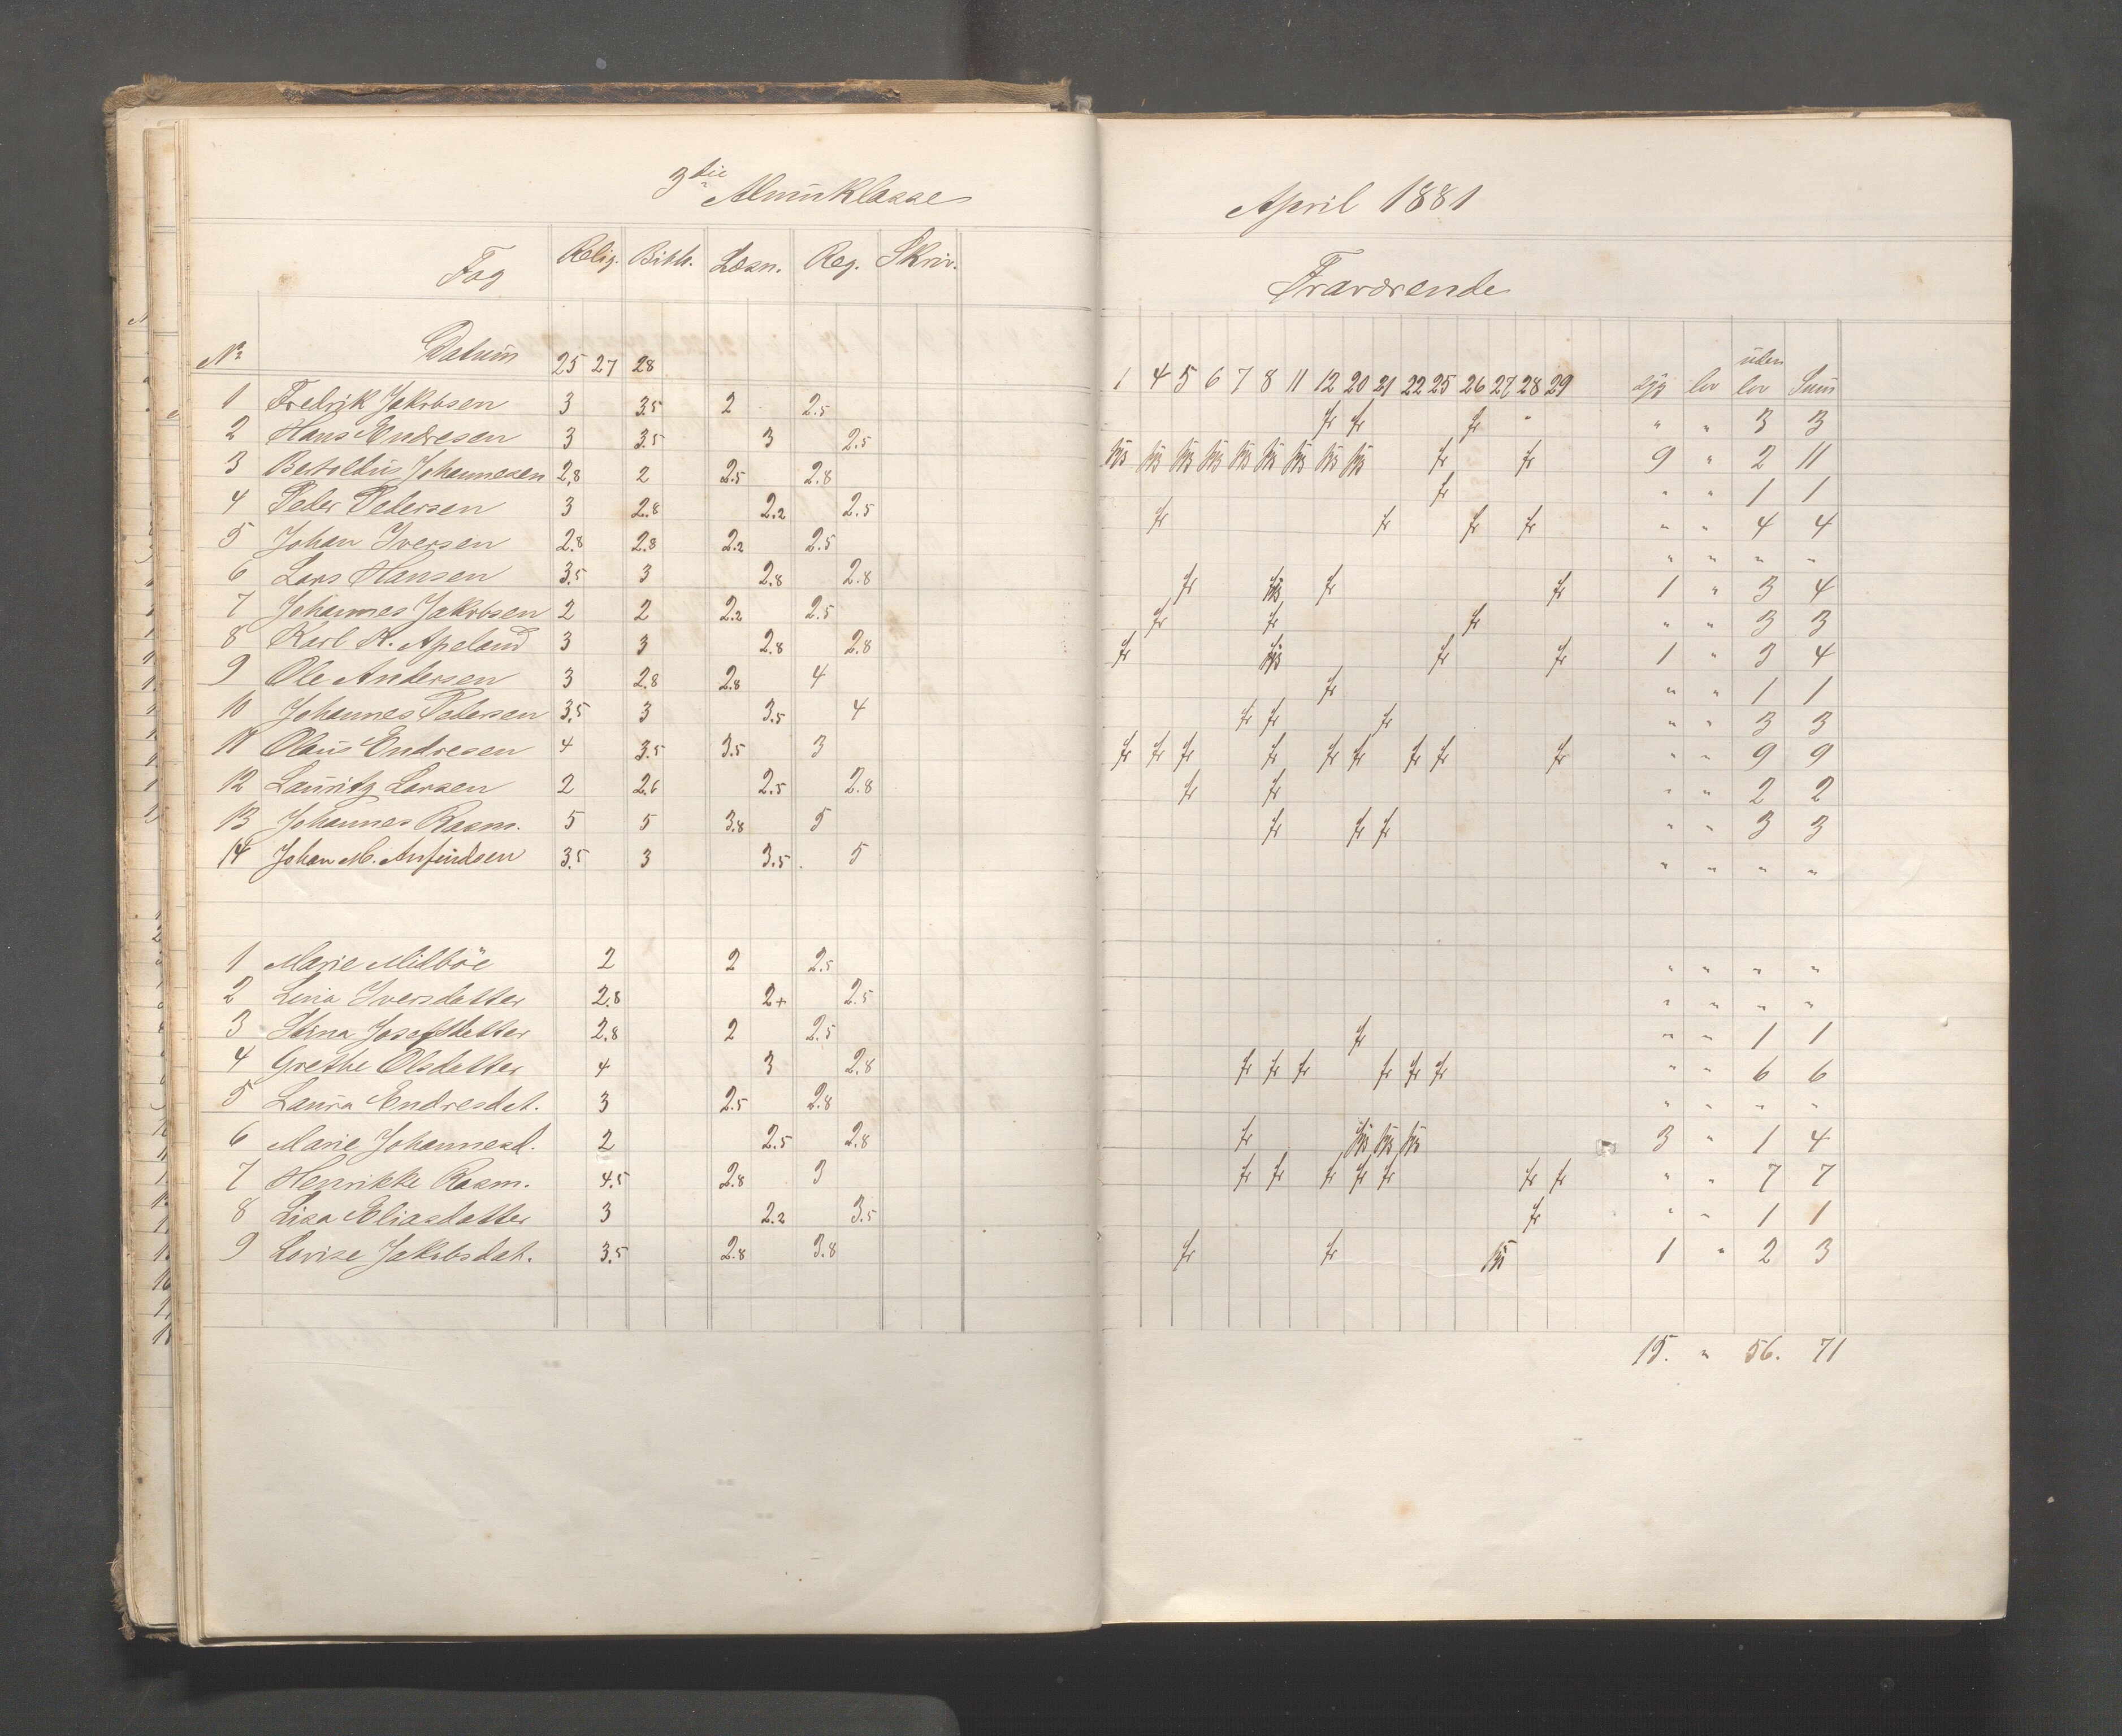 3die Almuklasse
Fag Relig. Bibh. Læsn. Reg. Skriv.
No Datum 25 27 28
1 Fredrik Jakobsen 3 3.5 2 2.5
2 Hans Endresen 3 3.5 3 2.5
3 Bertoldus Johannesen 2.8 2 2.5 2.8
4 Peder Pedersen 3 2.8 2.2 2.5
5 Johan Iversen 2.8 2.8 2.2 2.5
6 Lars Hansen 3.5 3 2.8 2.8
7 Johannes Jakobsen 2 2 2.2 2.5
8 Karl K. Apeland 3 3 2.8 2.8
9 Ole Andersen 3 2.8 2.8 4
10 Johannes Pedersen 3.5 3 3.5 4
11 Olaus Endresen 4 3.5 3.5 3
12 Lauritz Larsen 2 2.6 2.5 2.8
13 Johannes Rasm. 5 5 3.8 5
14 Johan M. Anfindsen 3.5 3 3.5 5
1 Marie Midböe 2 2 2.5
2 Lina Iversdatter 2.8 2+ 2.5
3 Stina Josefsdatter 2.8 2 2.5
4 Grethe Olsdatter 4 3 2.8
5 Laura Endresdat. 3 2.5 2.8
6 Marie Johannesd. 2 2.5 2.8
7 Henrikke Rasm. 4.5 2.8 3
8 Lisa Eliasdatter 3 2.2 3.5
9 Lovise Jakobsdat. 3.5 2.8 3.8
April 1881
Fraværende
1 4 5 6 7 8 11 12 20 21 22 25 26 27 28 29 syg lov uden lov Sum
fr fr fr " " " 3 3
fr fr 9 " 2 11
fr " " 1 1
fr fr fr fr " " 4 4
" " " "
fr fr fr 1 " 3 4
fr fr fr " " 3 3
fr fr fr 1 " 3 4
fr " " 1 1
fr fr fr " " 3 3
fr fr fr fr fr fr fr fr fr " " 9 9
fr fr " " 2 2
fr fr fr " " 3 3
" " " "
" " " "
" " " "
fr " " 1 1
fr fr fr fr fr fr " " 6 6
" " " "
fr 3 " 1 4
fr fr fr fr fr fr fr " " 7 7
fr " " 1 1
fr fr 1 " 2 3
15. " 56. 71